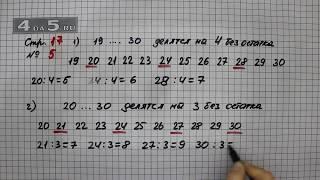 4 DA 5.RU
Стр. 17 1) 19 .... 30 делятся на 4 без остатка
№ 5 19 20 21 22 23 24 25 26 27 28 29 30
20:4=5 24:4=6 28:4=7
2) 20 ... 30 делятся на 3 без остатка
20 21 22 23 24 25 26 27 28 29 30
21:3=7 24:3=8 27:3=9 30:3=